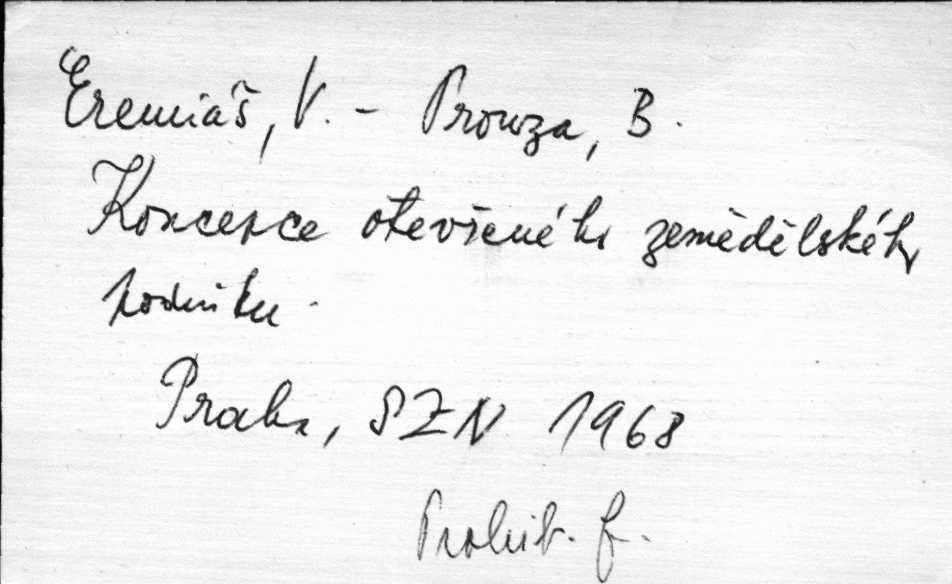 Eremiáš, V. - Prouza, B.
Koncepce otevřeného zemědělského
podniku.
Praha, SZN 1968
Prohib. f.